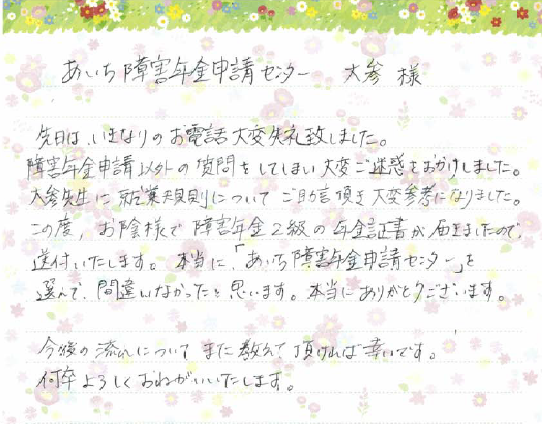 あいち障害年金申請センター 大参 様
先日は、いきなりのお電話大変失礼致しました。
障害年金申請以外の質問をしてしまい大変ご迷惑をおかけしました。
大参先生に就業規則についてご助言頂き大変参考になりました。
この度、お陰様で障害年金2級の年金証書が届きましたので、
送付いたします。本当に、「あいち障害年金申請センター」を
選んで、間違いなかったと思います。本当にありがとうございます。
今後の流れについてまた教えて頂ければ幸いです。
何卒よろしくおねがいいたします。